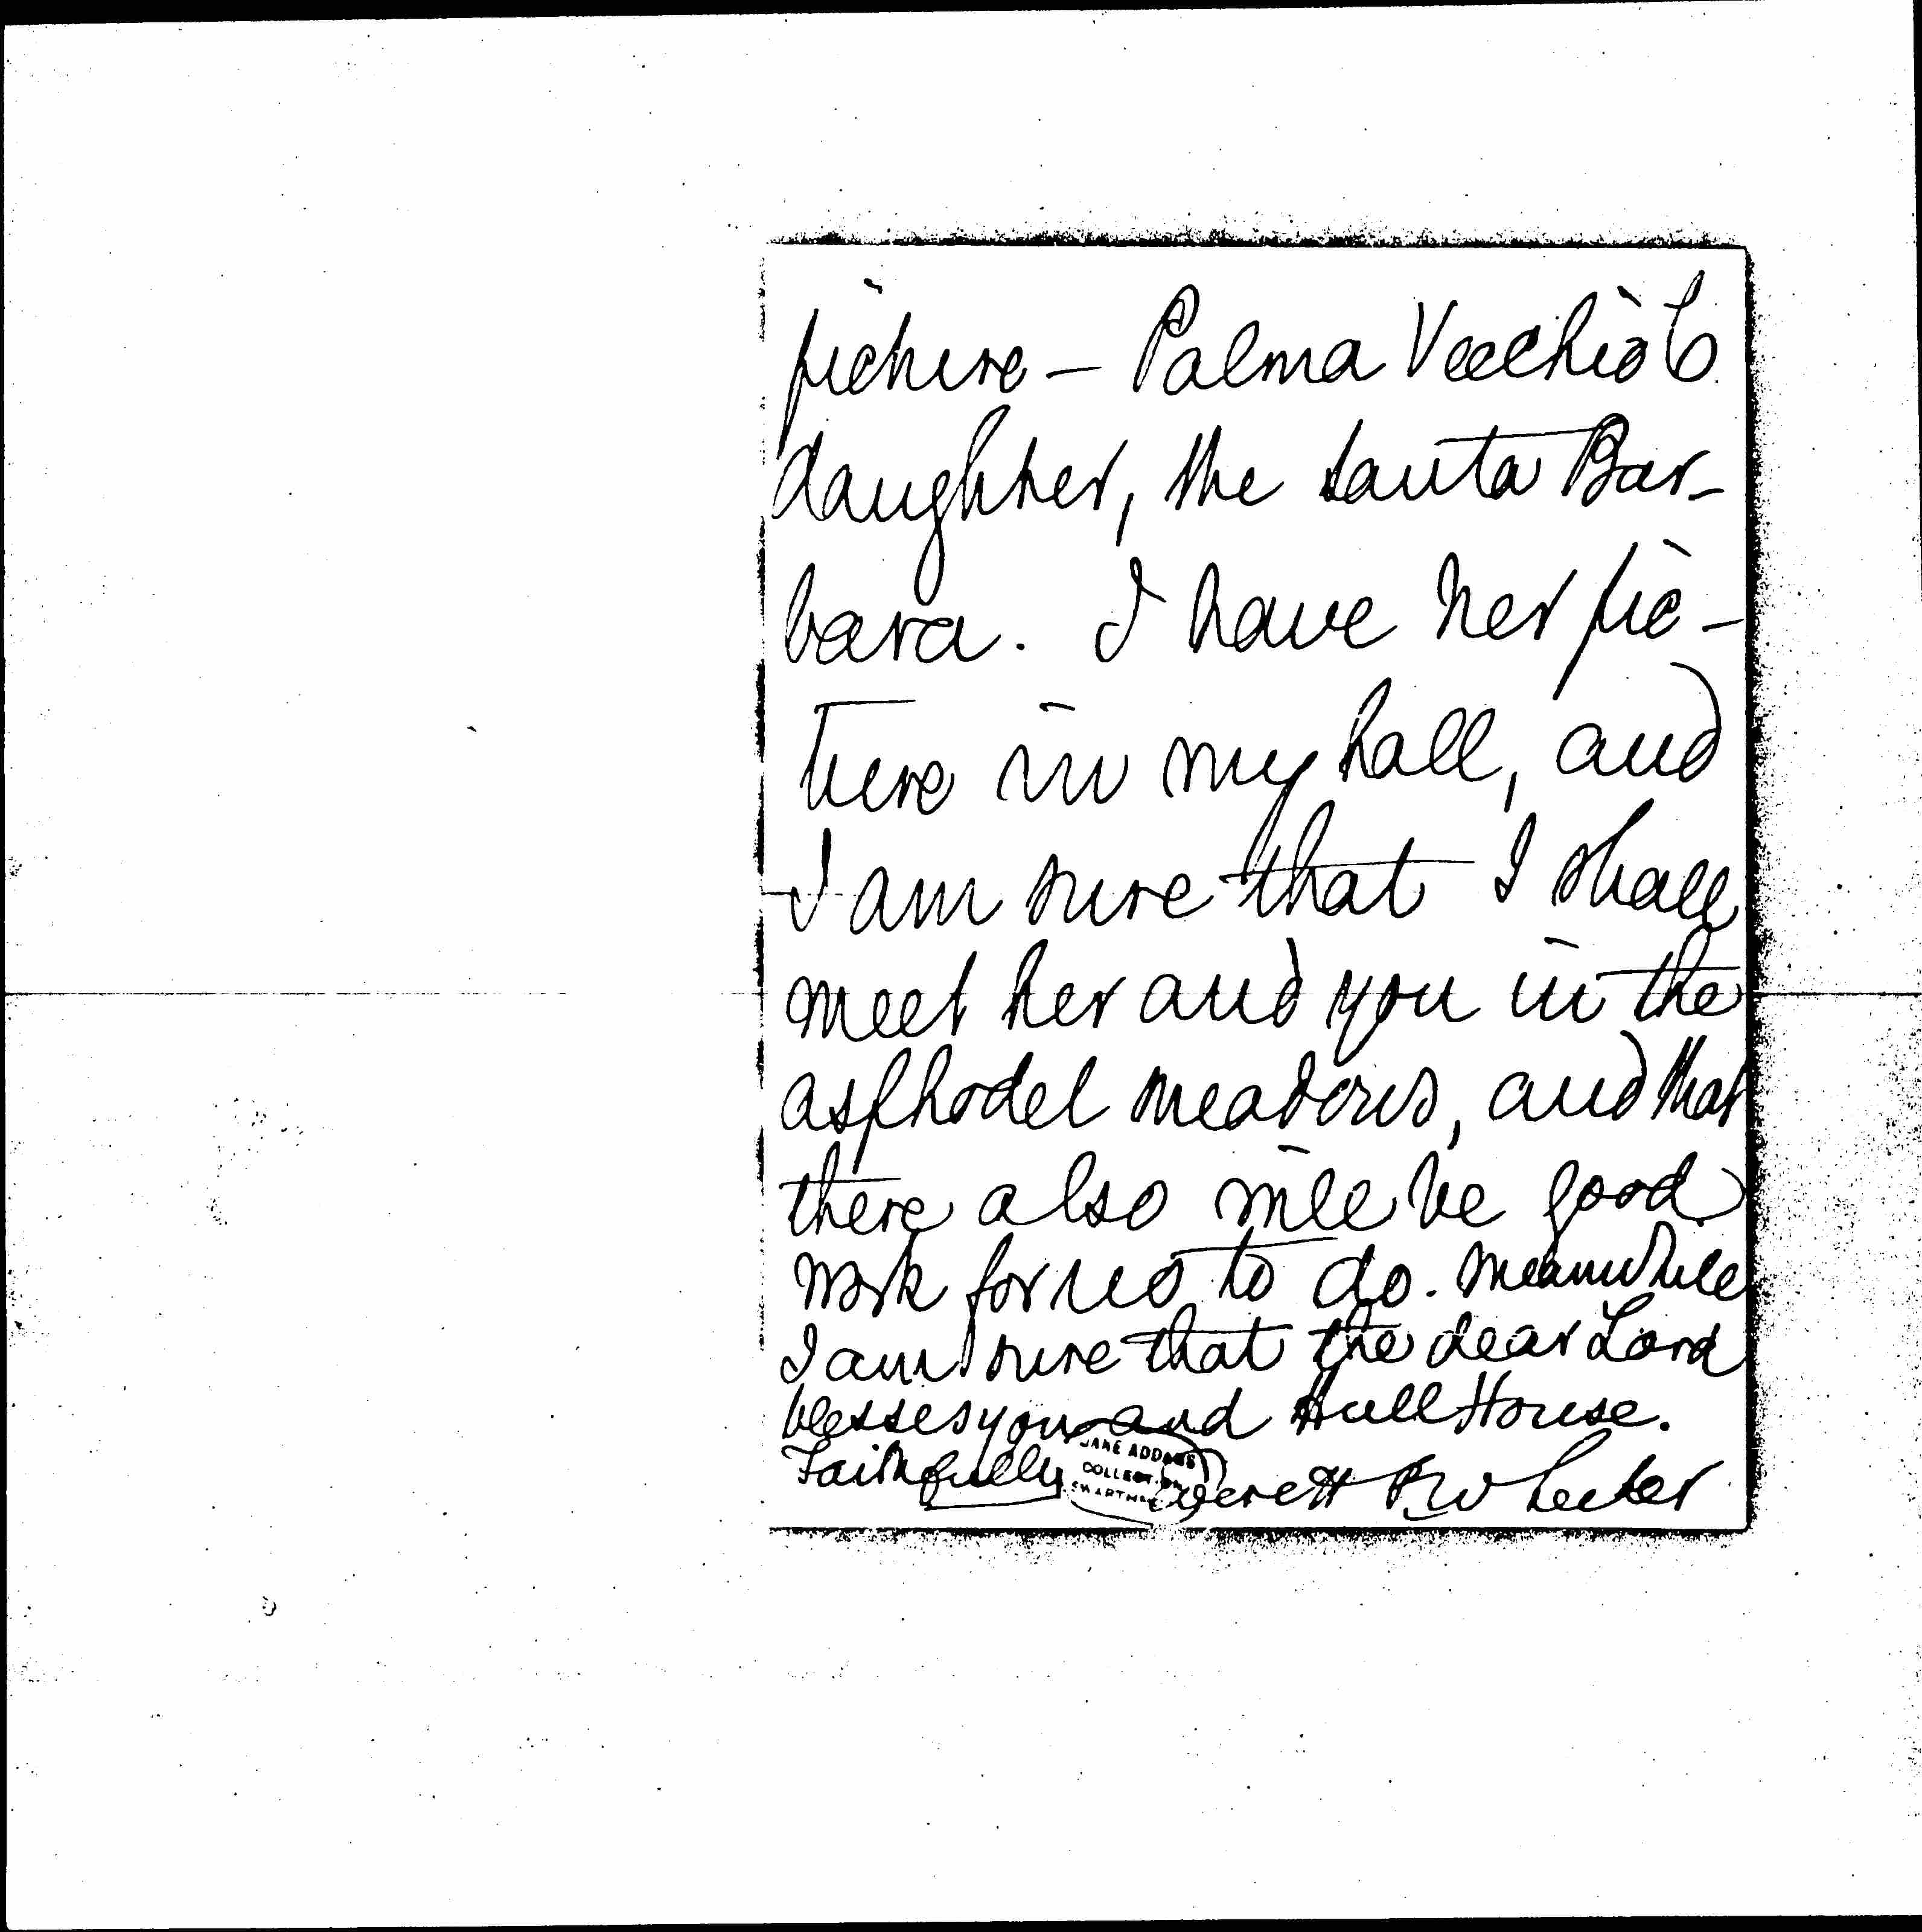 picture — Palma Vecchio's
daughter, the Santa Bar-
bara. I have her pic-
ture in my hall, and
I am sure that I shall
meet her and you in the
asphodel meadows, and that
there also will be good
work for us to do. Meanwhile
I am sure that the dear Lord
blesses you and Hull House.
Faithfully Everett P. Wheeler
JANE ADDAMS
COLLECTION
SWARTHMORE